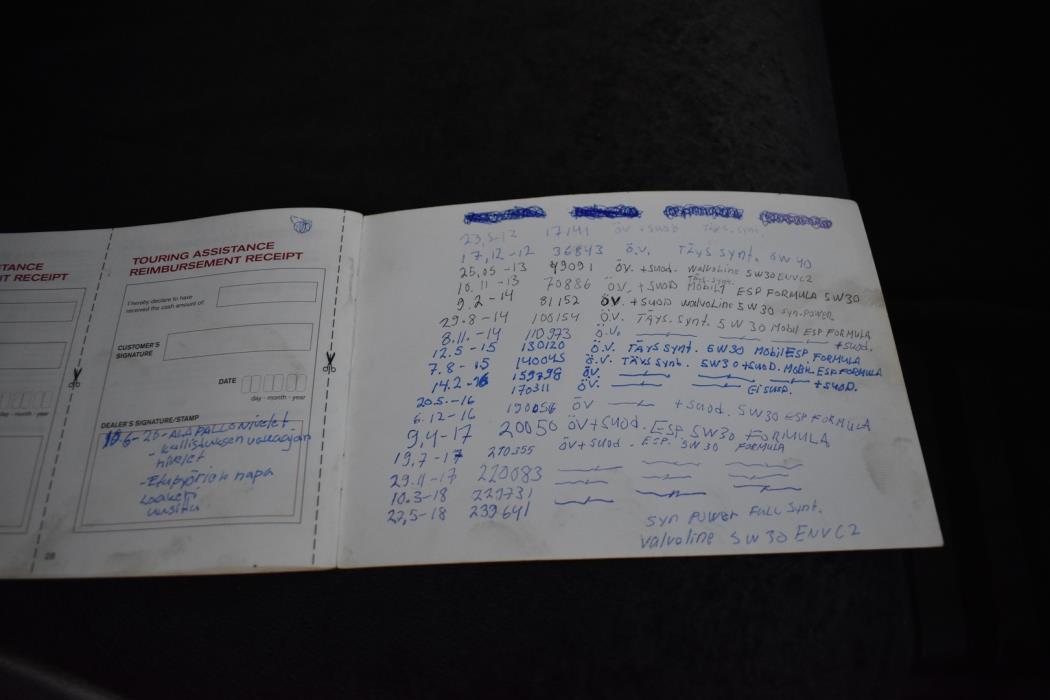 TANCE
T RECEIPT
28
TOURING ASSISTANCE
REIMBURSEMENT RECEIPT
I hereby declare to have
received the cash amount of:
CUSTOMER'S
SIGNATURE
DATE
day - month - year
DEALER'S SIGNATURE/STAMP
ALAPALLO NIVELET
- kallistuksen vakaajan
nivelet
- Etupyörien napa
Laakeri
23,5-12 17141 ÖV + suod Täys.synt.
17,12-12 36843 Ö.V. TÄYS SYNT. 5W40
25,05-13 49091 ÖV. + suod. walvoline 5W30 ENVC2
10.11-13 70886 ÖV. + SUOD Täys.synt. Mobil1 ESP FORMULA 5W30
9.2-14 81152 ÖV. + SUOD walvoline 5W30 syn.power
29.8-14 100154 ÖV. TÄYS. synt. 5W30 Mobil ESP FORMULA
8.11.-14 110973 Ö.V. + suod.
12.5-15 130120 Ö.V. TÄYS SYNT. 5W30 Mobil ESP FORMULA
7.8-15 140045 Ö.V. TÄYS SYNT. 5W30 + SUOD. MOBIL ESP FORMULA
14.2-16 159798 ÖV. + SUOD.
20.5.-16 170311 ÖV. Ei suod.
6.12-16 190056 ÖV + suod. 5W30 ESP FORMULA
9,4-17 20050 ÖV+SUOD. ESP 5W30 FORMULA
19,7-17 210355 ÖV+SUOD. ESP. 5W30 FORMULA
29.11-17 220083
10.3-18 229731
22,5-18 239641
syn Power Full Synt.
valvoline 5W30 ENVC2